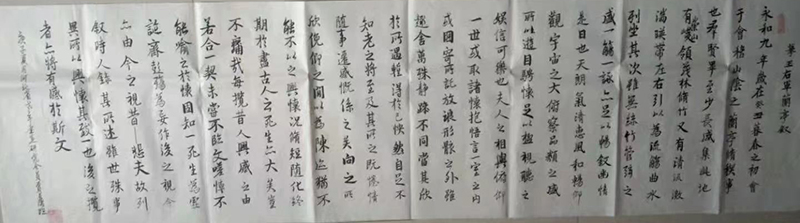 王右軍蘭亭叙
永和九年歲在癸丑暮春之初會
于會稽山陰之蘭亭脩稧事
也羣賢畢至少長咸集此地
有崇領茂林脩竹又有清流激
湍暎帶左右引以為流觴曲水
列坐其次雖無絲竹管弦之
盛一觴一詠亦足以暢叙幽情
是日也天朗氣清惠風和暢仰
觀宇宙之大俯察品類之盛
所以遊目騁懷足以極視聽之
娛信可樂也夫人之相與俯仰
一世或取諸懷抱悟言一室之內
或因寄所託放浪形骸之外雖
趣舍萬殊靜躁不同當其欣
於所遇暫得於己怏然自足不
知老之將至及其所之既倦情
隨事遷感慨係之矣向之所
欣俛仰之間以為陳迹猶不
能不以之興懷況脩短隨化終
期於盡古人云死生亦大矣豈
不痛哉每攬昔人興感之由
若合一契未嘗不臨文嗟悼不
能喻之於懷固知一死生為虛
誕齊彭殤為妄作後之視今
亦由今之視昔悲夫故列
叙時人錄其所述雖世殊事
異所以興懷其致一也後之攬
者亦將有感於斯文